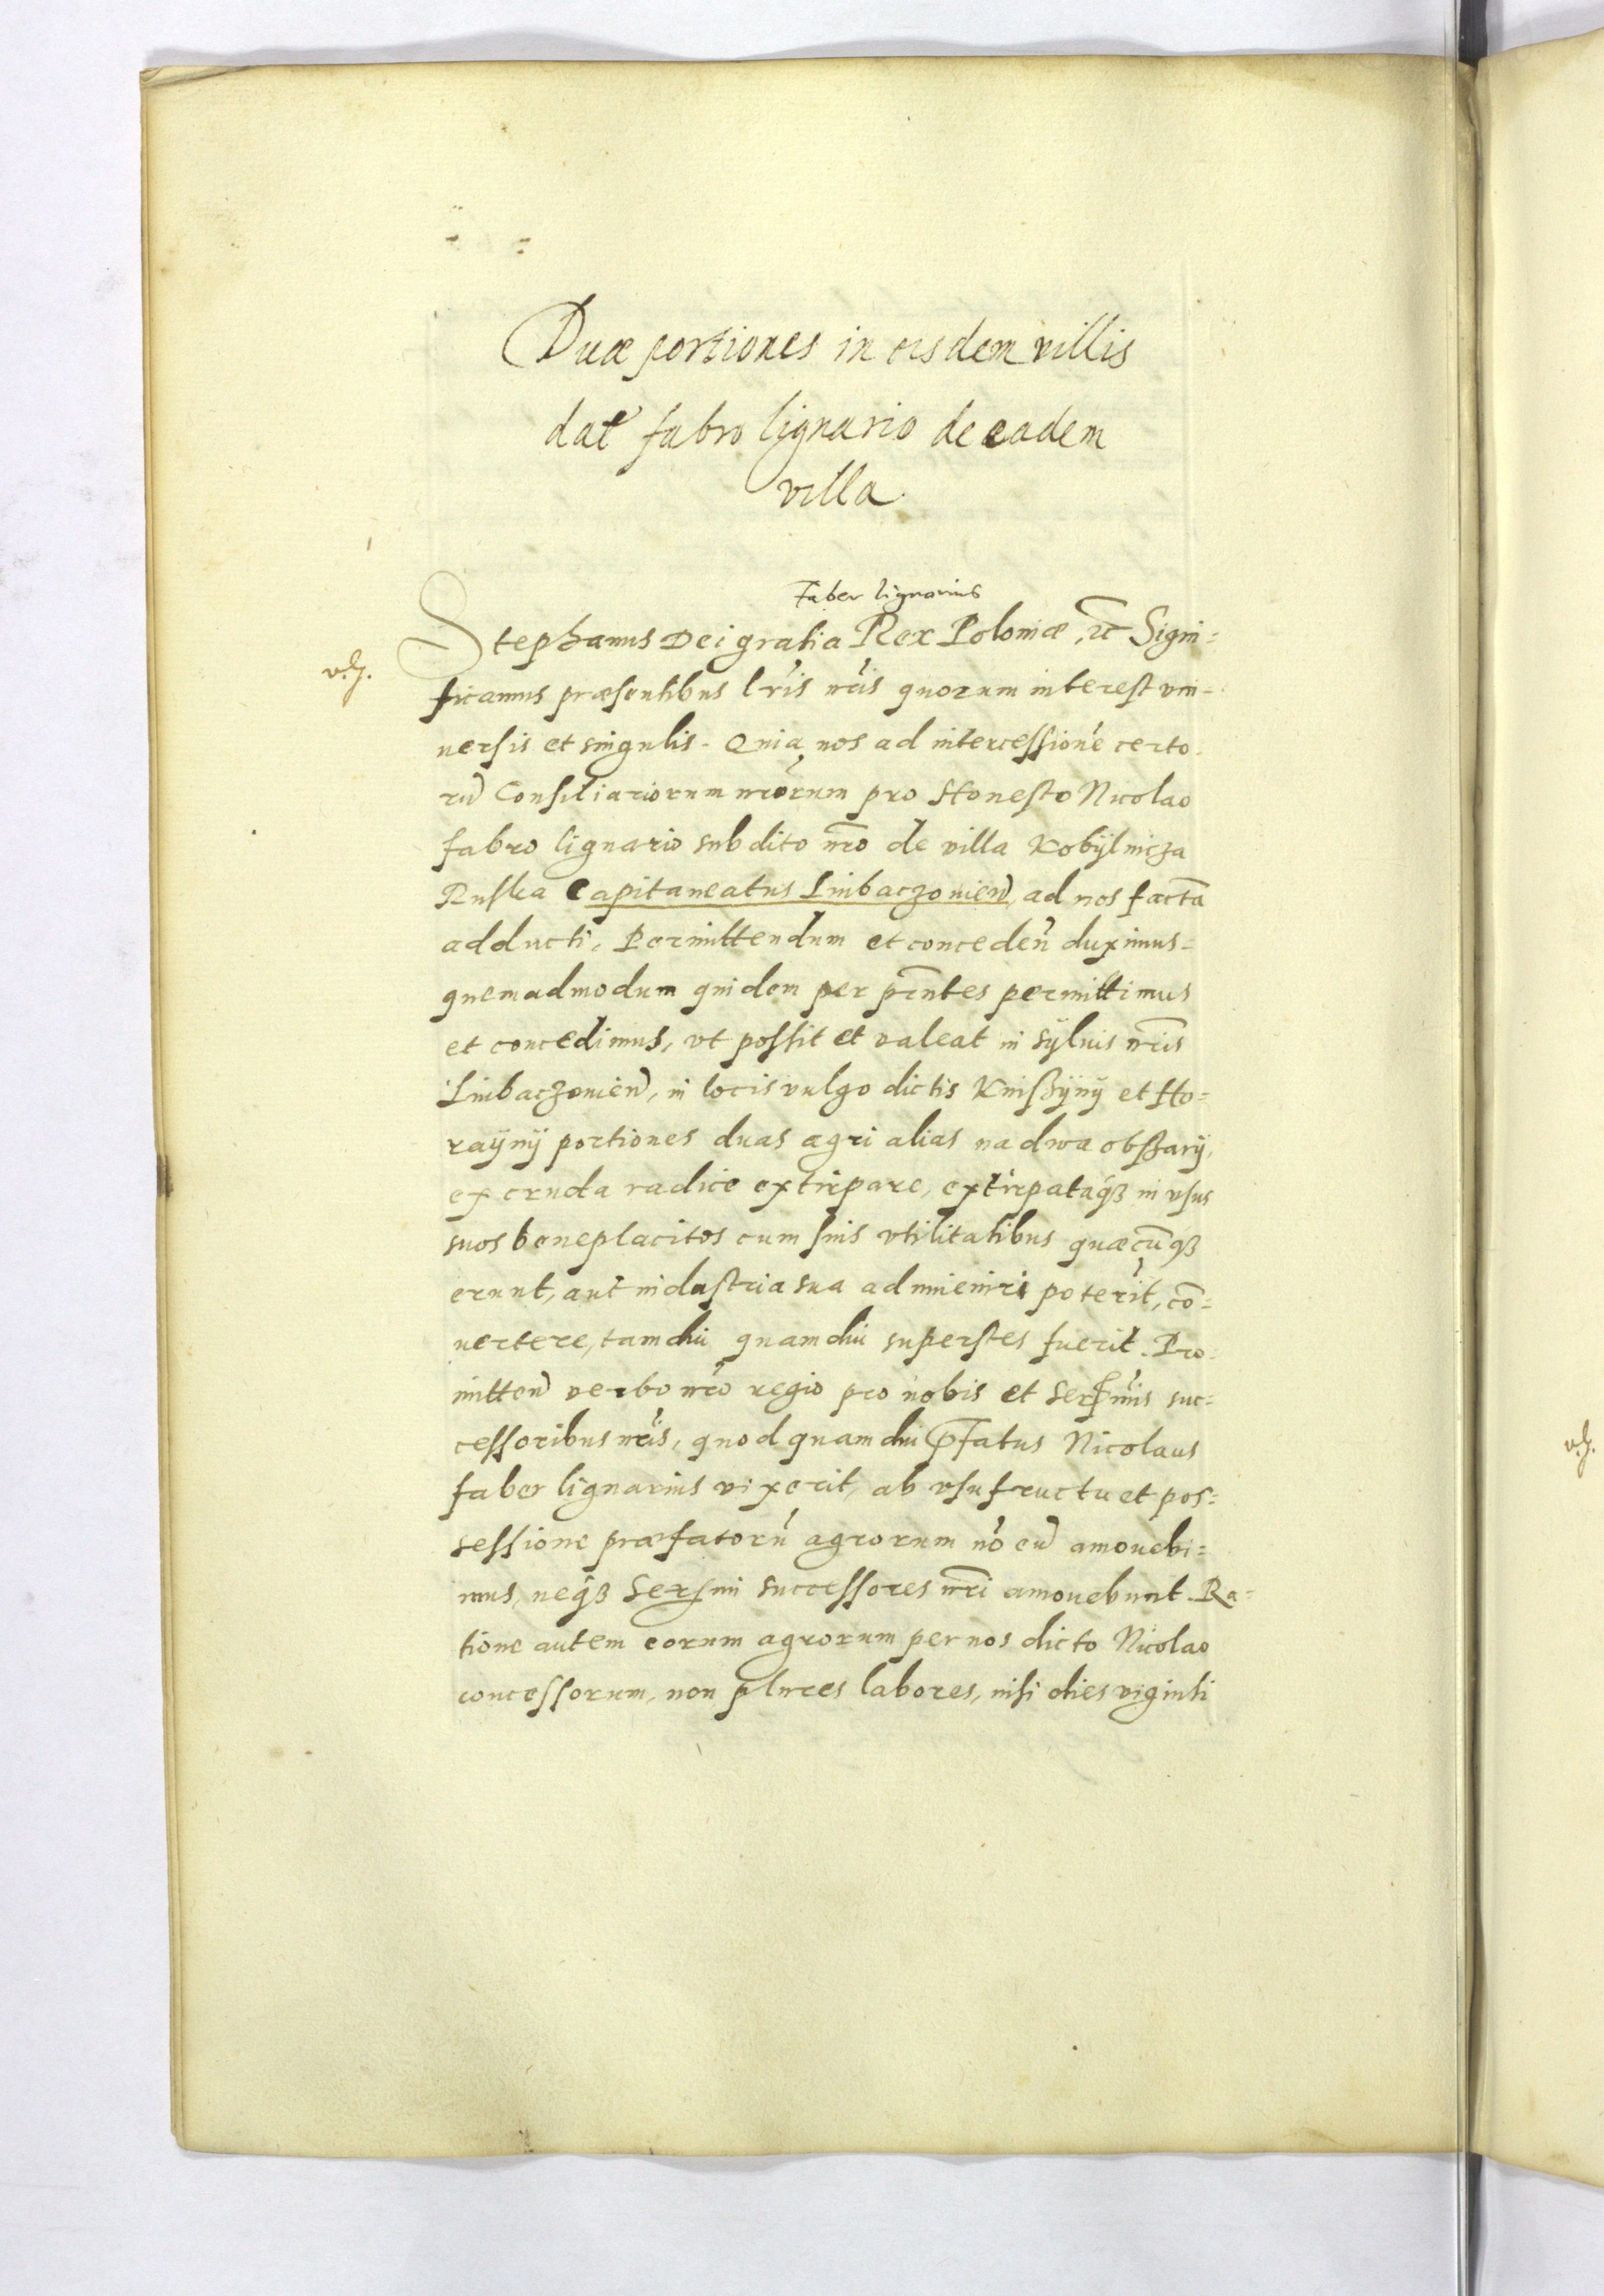 Duæ portiones in eisdem villis
dat̃ fabro lignario de eadem
villa.
Faber lignarius
Stephanus Dei gratia Rex Poloniæ, ec̃ Signi=
v.g.
ficamus præsentibus lr̃is nr̃is quorum interest vni=
uersis et singulis. Quia nos ad intercessionẽ certo=
rũ Consiliariorum nr̃orum pro Honesto Nicolao
fabro lignario subdito nr̃o de villa Kobÿlnicza
Ruska Capitaneatus Liubaczouień ad nos factã
adducti, Permittendum et conceden̄ duximus=
quemadmodum quidem per pñtes permittimus
et concedimus, vt possit et valeat in sÿluis nr̃is
Liubaczouień, in locis vulgo dictis Knißÿnÿ et Ho=
raÿnÿ portiones duas agri alias na dwa obßarÿ,
ex cruda radice extirpare, extirpataq́ꝫ in vsus
suos beneplacitos cum suis vtilitatibus quæcũq́ꝫ
erunt, aut industria sua adinueniri poterit, cõ=
uertere, tamdiu quamdiu superstes fuerit. Pro=
mitteń verbo nr̃o regio pro nobis et Serẽmis suc=
cessoribus nr̃is, quod quamdiu p̃fatus Nicolaus
faber lignarius vixerit, ab vsufructu et pos=
sessione præfatorũ agrorum nõ eũ amouebi=
mus, neq́ꝫ Sermi successores nr̃i amouebunt. Ra=
tione autem eorum agrorum per nos dicto Nicolao
concessorum, non plures labores, nisi dies viginti
v.g.